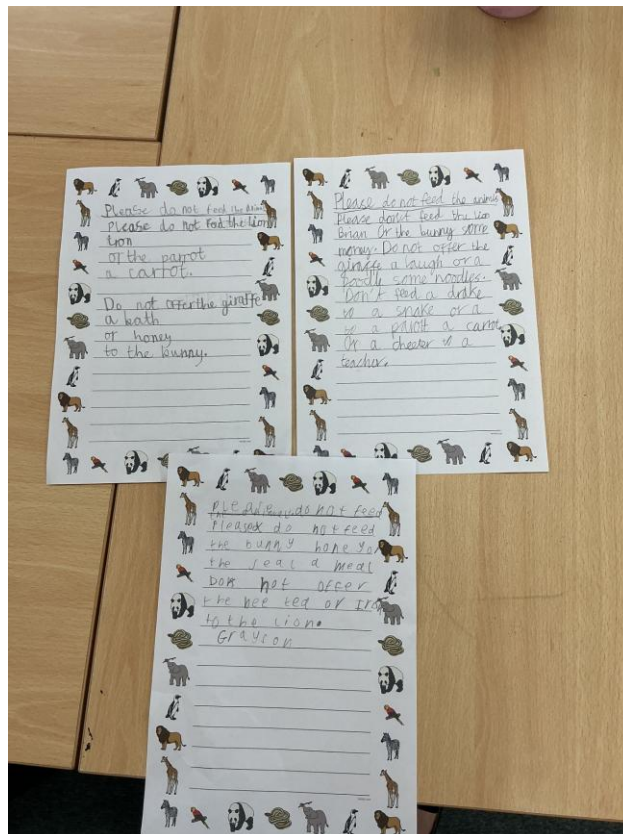 Please do not feed the animals
Please do not feed the lion
Iron
or the parrot
a carrot.
Do not offer the giraffe
a bath
or honey
to the bunny.
Please do not feed the animals
Please don't feed the lion
Brian Or the bunny some
money. Do not offer the
giraffe a laugh or a
Poodle some noodles.
Don't feed a drake
to a snake or a
to a parott a carrot
Or a cheeter to a
teacher.
Please do not feed
the animals
Please do not feed
the bunny honey or
the seal a meal
Do not offer
the bee tea or Iron
to the Lion.
Grayson